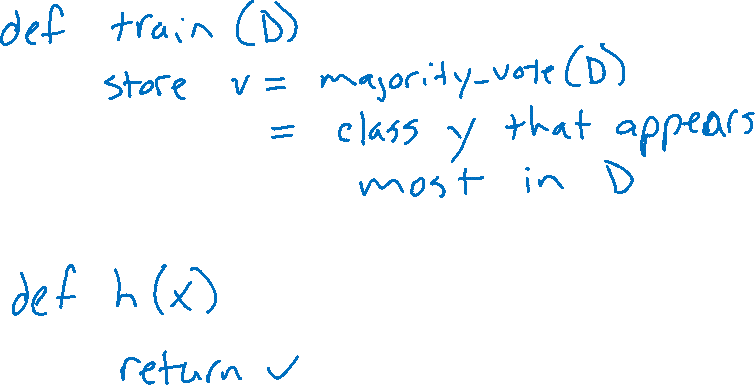 def train (D)
store v = majority-vote (D)
= class y that appears
most in D
def h(x)
return v